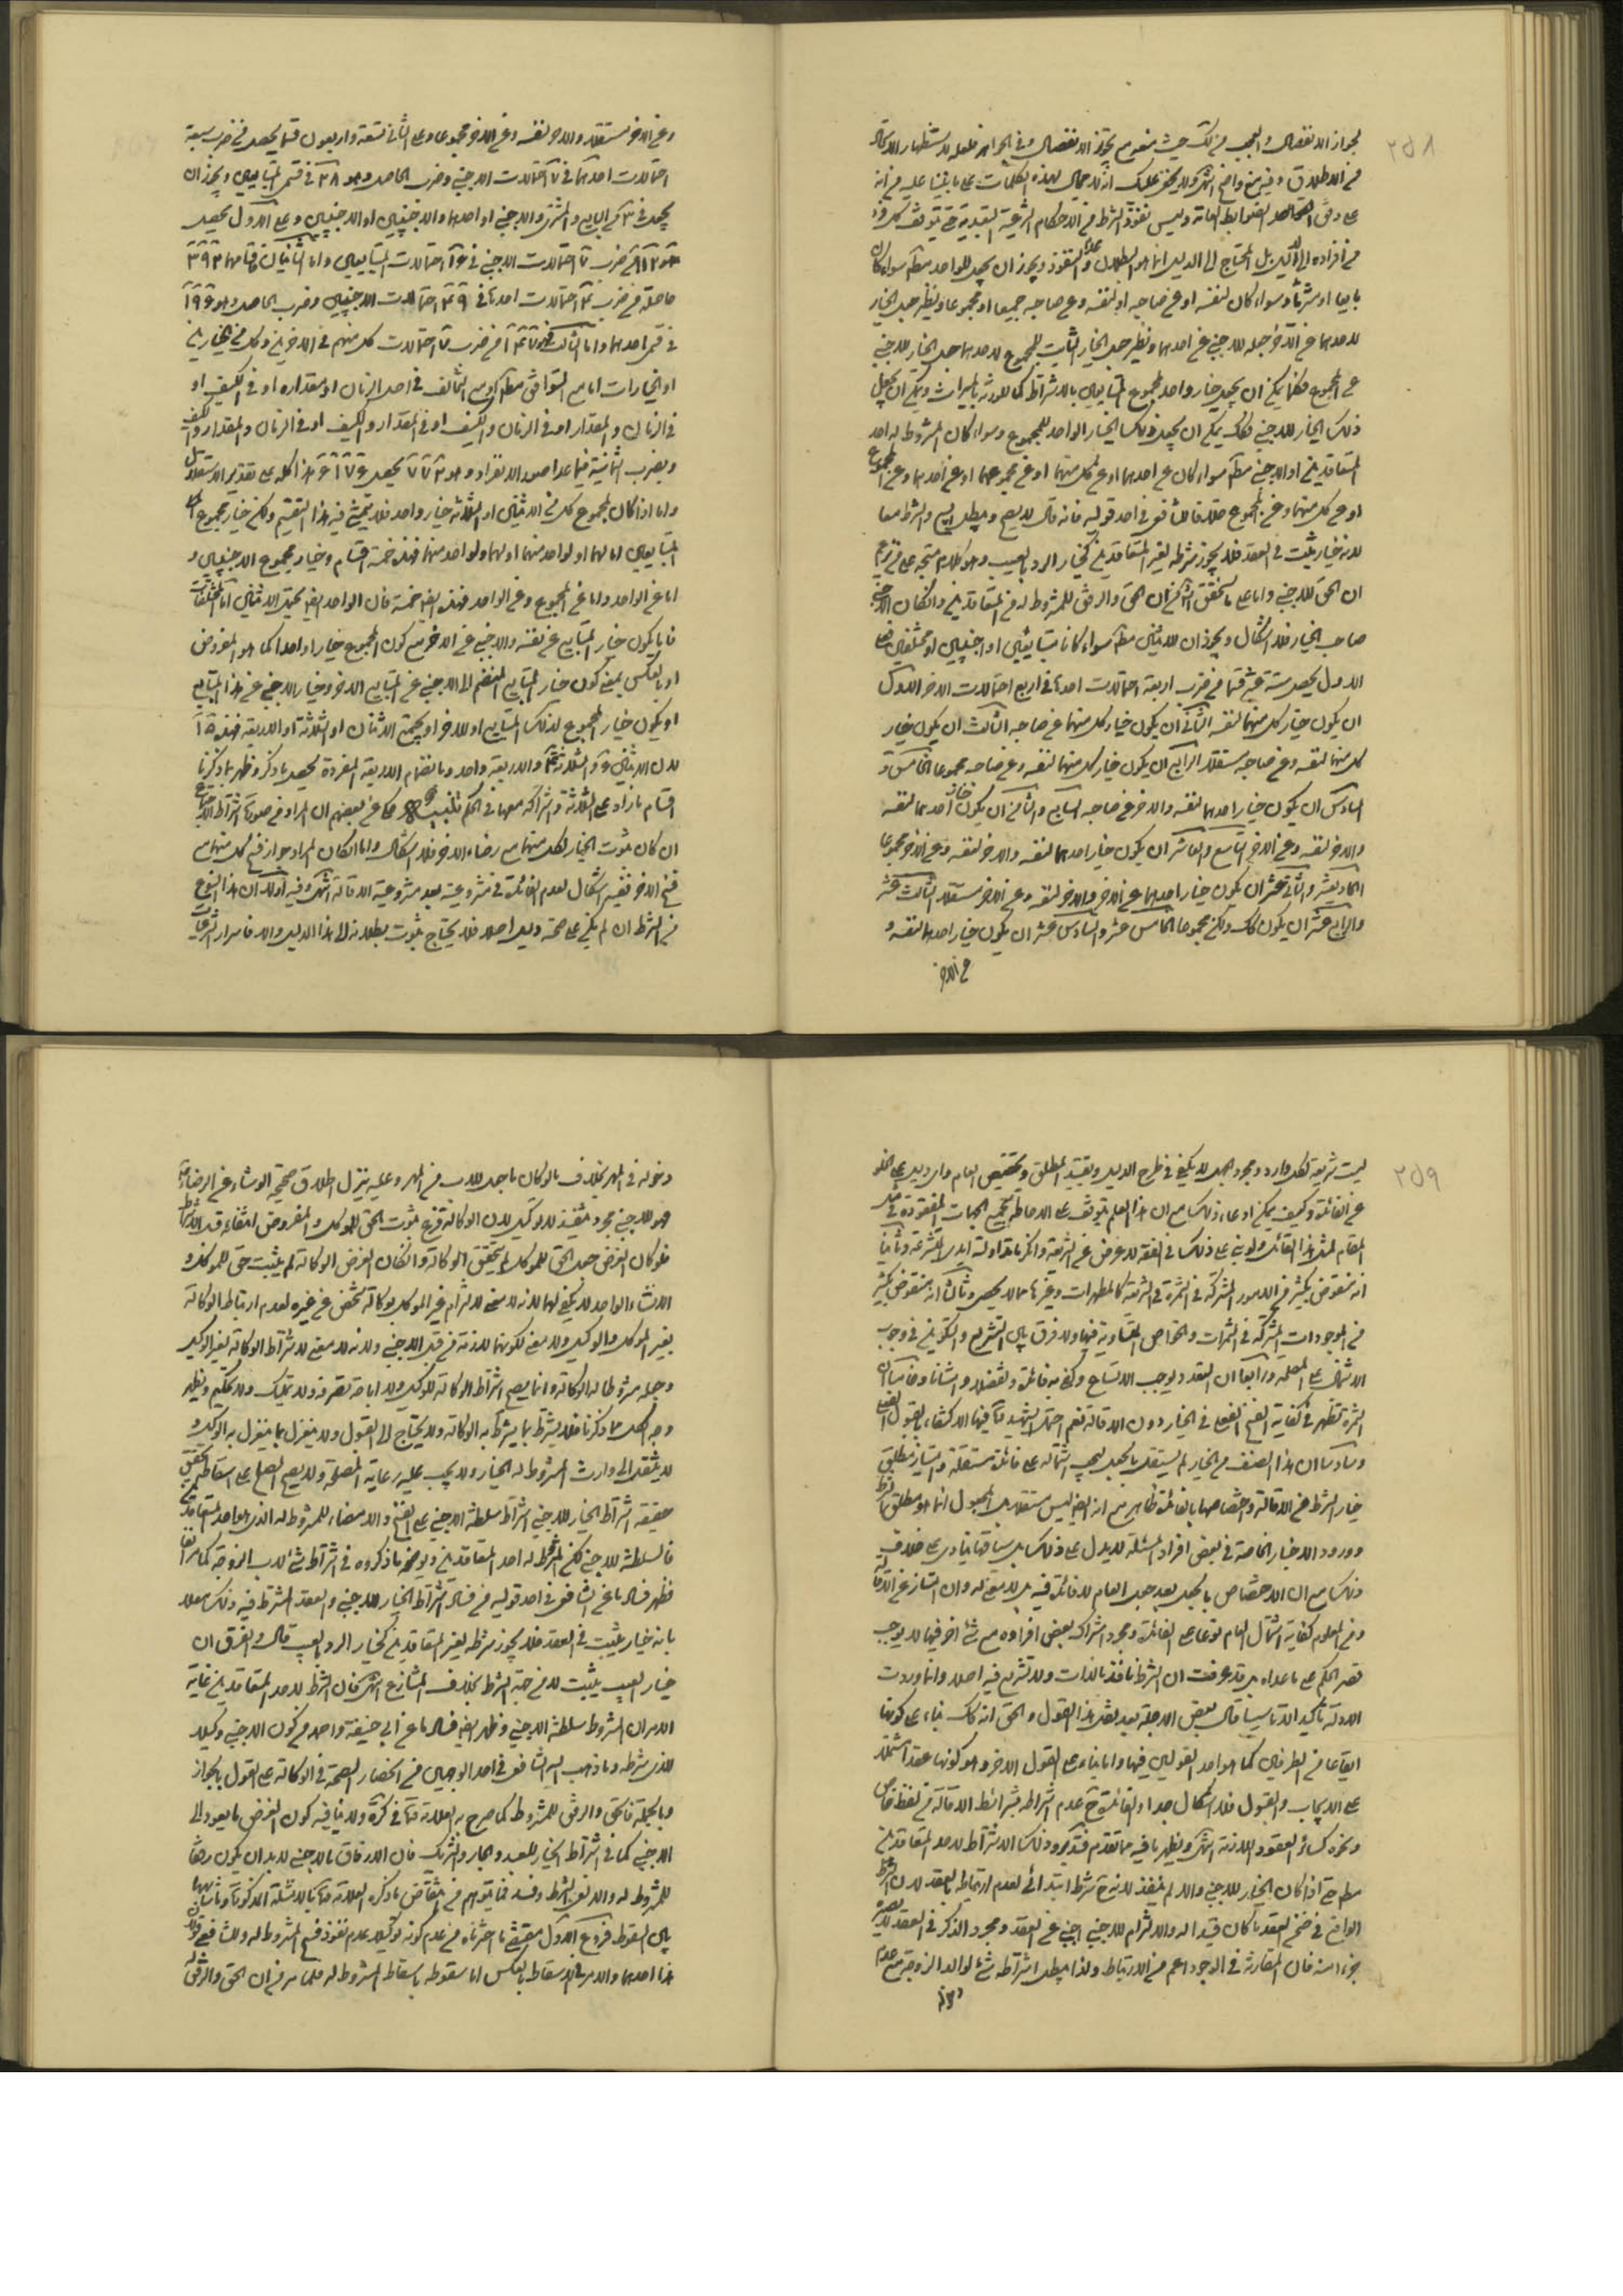 ٢٥٨
لجواز الانفصال والعجب من ذلك حيث منع من تجويز الانفصال وفي الجواهر فلعله لاستظهار الاتصال
من الاطلاق وفيه منع واضح انتهى ولا يخفى عليك انه لا مجال لهذه الكلمات على ما بنينا عليه من انه
على وفق القواعد الضوابط العامة وليس نفوذ الشرط من الاحكام الشرعية التعبدية حتى يتوقف كل فرد
من افراده الى الدليل بل المحتاج الى الدليل انما هو البطلان وعدم النفوذ ويجوز ان يجعل للواحد مطلقا سواء كان
بايعا او مشتريا وسواء كان لنفسه او عن صاحبه او لنفسه وعن صاحبه جميعا او مجموعا ونظير جعل الخيار
لاحدهما عن الاخر جعله للاجنبي عن احدهما ونظير جعل الخيار الثابت للمجموع لاحدهما جعل الخيار للاجنبي
عن المجموع فكما يمكن ان يجعل خيار واحد لمجموع المتبايعين بالاشتراط كما للورثة بالميراث ويمكن ان يجعل
ذلك الخيار للاجنبي فكذلك يمكن ان يجعل ذلك الخيار الواحد للمجموع وسواء كان المشروط له احد
المتعاقدين او الاجنبي مطلقا سواء كان عن احدهما او عن كل منهما او عن مجموعهما او عن احدهما وعن المجموع
او عن كل منهما وعن المجموع خلافا للشافعي في احد قوليه فانه قال لا يصح ويبطل البيع والشرط معا
لانه خيار يثبت في العقد فلا يجوز شرطه لغير المتعاقدين كخيار الرد بالعيب وهو كلام متجه على
ان الحق للاجنبي واما على ما تحقق من ان الحق والرفق للمشروط له من المتعاقدين وانكان الاجنبي
صاحب الخيار فلا اشكال ويجوز ان للاثنين مطلقا سواء كانا متبايعين او اجنبيين او مختلفين فعلى
الاول يحصل ستة عشر قسما من ضرب اربعة احتمالات احدهما في اربع احتمالات الاخر الاول
ان يكون خيار كل منهما لنفسه الثاني ان يكون خيار كل منهما عن صاحبه الثالث ان يكون خيار
كل منهما لنفسه وعن صاحبه مستقلا الرابع ان يكون خيار كل منهما لنفسه وعن صاحبه مجموعا الخامس و
السادس ان يكون خيار احدهما لنفسه والاخر عن صاحبه السابع والثامن ان يكون خيار احدهما لنفسه
والاخر لنفسه وعن الاخر التاسع والعاشر ان يكون خيار احدهما لنفسه والاخر لنفسه وعن الاخر مجموعا
الحادي عشر والثاني عشر ان يكون خيار احدهما عن الاخر والاخر لنفسه وعن الاخر مستقلا الثالث عشر
والرابع عشر ان يكون كذلك ولكن مجموعا الخامس عشر والسادس عشر ان يكون خيار احدهما لنفسه و
عن الاخر
وعن الاخر مستقلا والاخر لنفسه وعن الاخر مجموعا وعلى الثاني تسعة واربعون قسما يحصل من ضرب سبعة
احتمالات احدهما في ٧ احتمالات الاجنبي وضرب الحاصل وهو ٢٨ في قسمي المتبايعين ويجوز ان
يجعل في ٣ من البايع والمشتري والاجنبي او احدهما والاجنبيين او الاجنبيين وعلى الاول يحصل
١١٢ من ضرب ٧ احتمالات الاجنبي في ١٦ احتمالات المتبايعين واما الثانيان فاقسامهما ٣٩٢
حاصلة من ضرب ٤ احتمالات احدهما في ٤٩ احتمالات الاجنبيين وضرب الحاصل وهو ١٩٦
في قسمي احدهما واما الثالث فهو من ضرب ٧ احتمالات كل منهم في الاخرين وكل من الخيارين
او الخيارات اما مع التوافق مطلقا او مع التخالف في احد الزمان او مقداره او في الكيف او
في الزمان والمقدار او في الزمان والكيف او في المقدار والكيف او في الزمان والمقدار والكيف
وبضرب الثمانية فيما عدا صور الانفراد وهو يحصل هذا كله على تقدير الاستقلال
واما اذا كان لمجموع كل من الاثنين او الثلاثة خيار واحد فلا يتمشى فيه هذا التقسيم ولكن خيار مجموع
المتبايعين اما لهما او لواحد منهما او لهما ولواحد منهما فهذه خمسة اقسام وخيار مجموع الاجنبيين و
اما عن الواحد واما عن المجموع وعن الواحد فهذه ايضا خمسة فان الواحد ايضا يحتمل الاثنين اما المختلفان
فاما يكون خيار المتبايع عن نفسه والاجنبي عن الاخر مع كون المجموع خيارا واحدا كما هو المفروض
او بالعكس بمعنى كون خيار المتبايع المنضم الى الاجنبي عن المتبايع الاخر وخيار الاجنبي عن هذا المتبايع
او يكون خيار المجموع لذلك المتبايع او للاخر او يجتمع الاثنان او الثلاثة او الاربعة فهذه ١٥
لان الاثنين ٦ والثلاثة ٤ والاربعة واحد وبانضمام الاربعة المنفردة يحصل ما ذكر وظهر بما ذكرنا
اقسام ما زاد على الثلاثة واشتراكه معها في الحكم تنبيه حكي عن بعضهم ان المراد من صورة اشتراط الاجتماع
ان كان ثبوت الخيار لكل منهما مع رضاء الاخر فلا اشكال واما انكان المراد جواز فسخ كل منهما مع
فسخ الاخر ففيه اشكال لعدم الفائدة في مشروعيته بعد مشروعية الاقالة انتهى وفيه اولا ان هذا النوع
من الشرط ان لم يكن على صحته دليل اصلا فلا يحتاج ثبوت بطلانه الى هذا الدليل والا فاسرار الشرعيات
٢٥٩
ليست شريعة لكل وارد ومجرد الجهل لا يكفي في طرح الدليل وتقييد المطلق وتخصيص العام واي دليل على الخلو
عن الفائدة وكيف يمكن ادعاء ذلك مع ان هذا العلم يتوقف على الاحاطة بجميع الجهات المفقودة في مثل
المقام لمثل هذا القائل ولو بنى على ذلك في الفقه لاعرض عن الشريعة وانكر ما تداولته ايدي المتشرعة وثانيا
انه منقوض بكثير من الامور المشتركة في الثمرة في الشريعة كالمطهرات وغيرها مما لا يحصى وثالثا انه منقوض بكثير
من الموجودات المشتركة في الثمرات والخواص المتساوية فيها ولا فرق بين التشريع والتكوين في وجوب
الاشتمال على المصلحة ورابعا ان التعدد لوجب الاتساع وكفى به فائدة وتفضلا وامتنانا وخامسا ان
الثمرة تظهر في كفاية الفسخ الفعلي في الخيار دون الاقالة نعم احتمل الشهيد ره فيها الاكتفاء بالقبول الفعلي
وسادسا ان هذا الصنف من الخيار لم يستقل بالجعل ليجب اشتماله على فائدة مستقلة وامتياز مطلق
خيار الشرط عن الاقالة واختصاصها بالفائدة ظاهر مع انه ايضا ليس مستقلا بالجعل انما هو مطلق الشرط
وورود الاخبار الخاصة في بعض افراد المسئلة لا يدل على ذلك بل سياقها ينادي على خلاف
ذلك مع ان الاختصاص بالجعل بعد جعل العام لا فائدة فيه بل لا معنى له وان امتاز عن الاقالة
ومن المعلوم كفاية اشتمال العام نوعا على الفائدة ومجرد اشتراك بعض افراده مع شئ اخر فيها لا يوجب
قصر الحكم على ما عداه بل قد عرفت ان الشرط نافذ بالذات ولا تشريع فيه اصلا وانما وردت
الادلة تاكيدا لا تاسيسا قال بعض الاجلة بعد نقل هذا القول والحق انه كذلك بناء على كونها
ايقاعا من الطرفين كما هو احد القولين فيها واما بناء على القول الاخر وهو كونها عقدا مشتملا
على الايجاب والقبول فلا اشكال جدا والفائدة ح عدم اشتراطه بشرائط الاقالة من لفظ خاص
ونحوه كسائر العقود اللازمة انتهى ويظهر ما فيه مما تقدم فتدبر وذلك الاشتراط لاحد المتعاقدين
مطلقا حتى اذا كان الخيار للاجنبي والا لم ينفذ لانه ح شرط ابتدائي لعدم ارتباطه بالعقد لان الشرط
الواقع في ضمن العقد ما كان قيدا له والالتزام للاجنبي اجنبي عن العقد ومجرد الذكر في العقد لا يصيره
جزءا منه فان المقارنة في الوجود اعم من الارتباط ولذا يبطل اشتراطه شئ لوالد الزوجة مع عدم
دخوله
دخوله في المهر بخلاف ما لو كان ما جعل للاب من المهر وعليه ينزل اطلاق صحيحة الوشاء عن الرضا ع
هو للاجنبي مجرد تنفيذ لا توكيل لان الوكالة فرع ثبوت الحق للموكل والمفروض انتفائه قبل الاشتراط
فلو كان الغرض جعل الحق للموكل لم يتحقق الوكالة وانكان الغرض الوكالة لم يثبت حق للموكل و
الانشاء الواحد لا يكفي لهما لانه لا معنى لالتزام غير الموكل بوكالة شخص عن غيره لعدم ارتباط الوكالة
بغير الموكل والوكيل ولا معنى لكونهما لازمة من قبل الاجنبي ولانه لا معنى لاشتراط الوكالة لغير الوكيل
وجعله مشروطا له الوكالة وانما يصح اشتراط الوكالة للوكيل ولا اباحة تصرف ولا تمليك ولا تحكيم ويظهر
وجه الكل مما ذكرنا فلا يشترط بما يشترط به الوكالة ولا يحتاج الى القبول ولا ينعزل بما ينعزل به الوكيل و
لا ينتقل الى وارث المشروط له الخيار ولا يجب عليه رعاية المصلحة ولا يصح الصلح على اسقاطه لتحقق
حقيقة اشتراط الخيار للاجنبي اشتراط سلطنة الاجنبي على الفسخ والامضاء للمشروط له الذي هو احد المتعاقدين
فالسلطنة للاجنبي لكن المشروط له احد المتعاقدين ويوضحه ما ذكروه في اشتراط شئ لاب الزوجة كما مر انفا
فظهر فساد ما عن الشافعي في احد قوليه من فساد اشتراط الخيار للاجنبي والعقد المشترط فيه ذلك معللا
بانه خيار يثبت في العقد فلا يجوز شرطه لغير المتعاقدين كخيار الرد بالعيب قال والفرق ان
خيار العيب يثبت لا من جهة الشرط بخلاف المتنازع انتهى فان الشرط لاحد المتعاقدين غاية
الامر ان المشروط سلطنة الاجنبي وظهر ايضا فساد ما عن ابي حنيفة واحمد من كون الاجنبي وكيلا
للذي شرطه وما ذهب اليه الشافعي في احد الوجهين من انحصار الصحة في الوكالة على القول بالجواز
وبالجملة فالحق والرفق للمشروط كما صرح به العلامة ره في كرة ولا ينافيه كون الغرض ما يعود الى
الاجنبي كما في اشتراط الخيار للعبد والجار والشريك فان الارفاق بالاجنبي لابد ان يكون رفقا
للمشروط له والا لغى الشرط وفسد فما يتوهم من تناقض ما ذكره العلامة ره بالامثلة المذكورة
بين السقوط فروع الاول مقتضى ما اخترناه من عدم كونه توكيلا عدم نفوذ فسخ المشروط له وللشافعي قولان
هذا احدهما والامر في الاسقاط بالعكس اما سقوطه باسقاط المشروط له فلما مر من ان الحق والرفق له